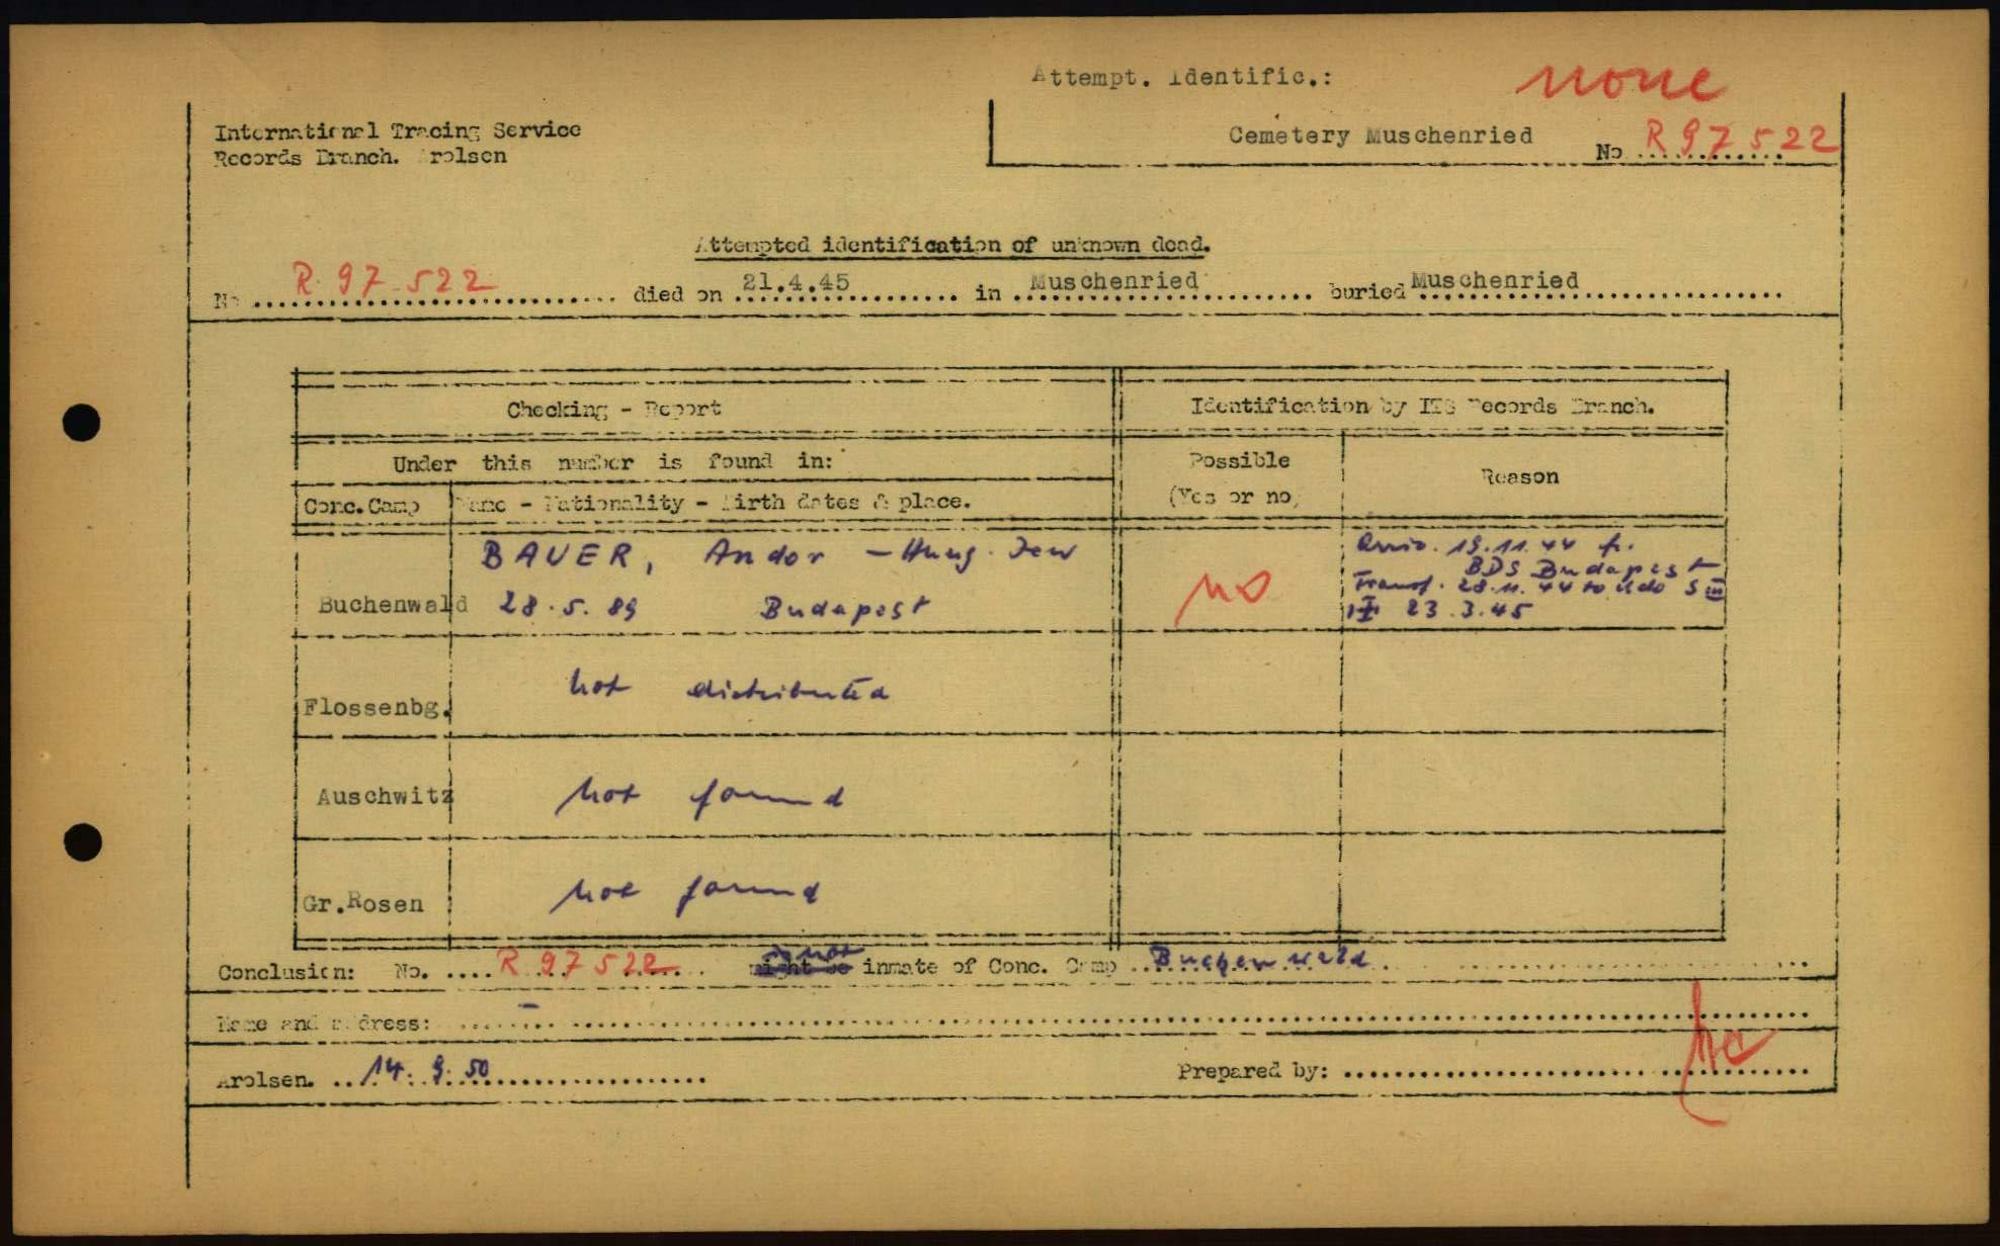 Attempt. Identific.: none
International Tracing Service
Records Branch. Arolsen
Cemetery Muschenried No R 97 522
Attempted identification of unknown dead.
No R 97 522 died on 21.4.45 in Muschenried buried Muschenried
Checking - Report
Identification by ITS Records Branch.
Under this number is found in:
Possible
(Yes or no)
Reason
Conc. Camp
Name - Nationality - Birth dates & place.
Buchenwald
BAUER, Andor - Hung. Jew
28.5.89 Budapest
no
Arriv. 19.11.44 fr.
BDS Budapest
Transf. 28.11.44 to Kdo S III
23.3.45
Flossenbg.
not distributed
Auschwitz
not found
Gr.Rosen
not found
Conclusion: No. R 97 522 might be is not inmate of Conc. Camp Buchenwald
Name and address: -
Arolsen. 14. 9. 50
Prepared by: